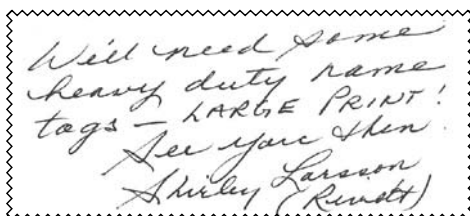 Will need some
heavy duty name
tags – LARGE PRINT!
See you then.
Shirley Larsson